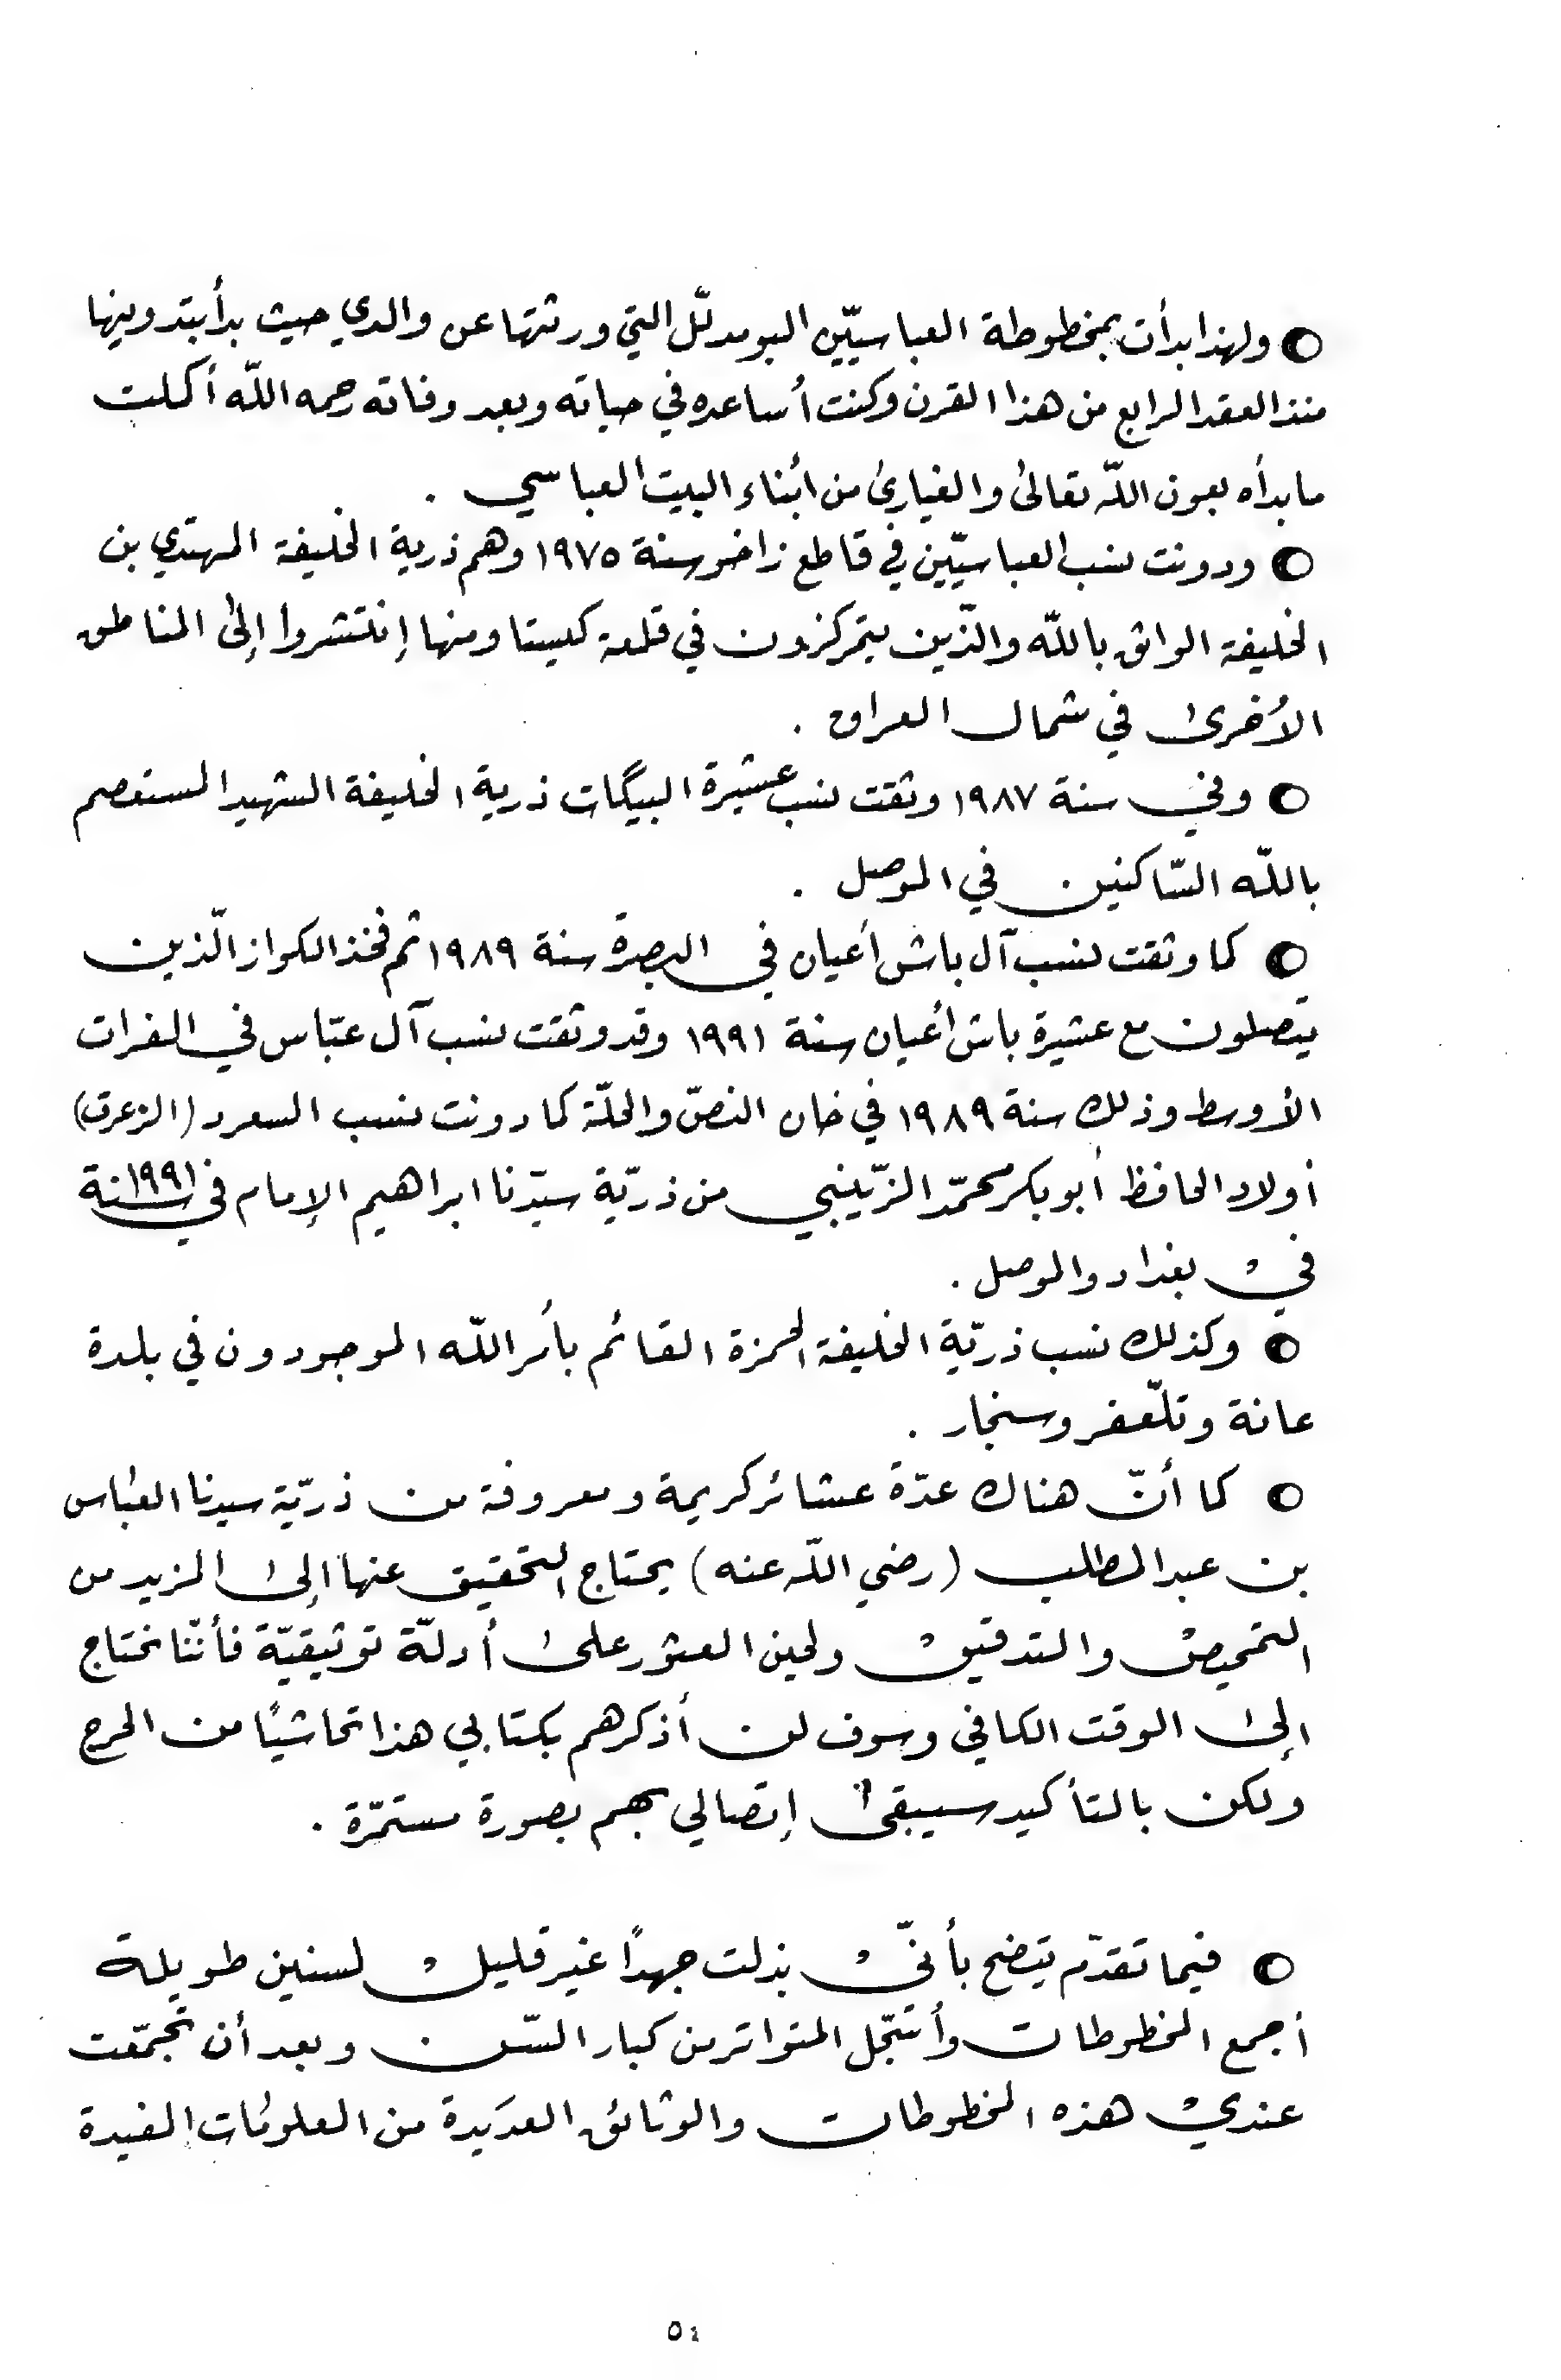 ○ ولهذا بدأت بمخطوطة العباسيّين البومدلّل التي ورثتها عن والدي حيث بدأ بتدوينها
منذ العقد الرابع من هذا القرن وكنت أساعده في حياته وبعد وفاته رحمه اللّه أكملت
ما بدأه بعون اللّه تعالىٰ والغيارىٰ من أبناء البيت العباسي .
○ ودونت نسب العباسيّين في قاطع زاخو سنة ١٩٧٥ وهم ذرية الخليفة المهتدي بن
الخليفة الواثق باللّه والّذين يتمركزون في قلعة كيستا ومنها إنتشروا إلىٰ المناطق
الأُخرىٰ في شمال العراق .
○ وفي سنة ١٩٨٧ وثقت نسب عشيرة البيگات ذرية الخليفة الشهيد المستعصم
باللّه السّاكنين في الموصل .
○ كما وثقت نسب آل باش أعيان في البصرة سنة ١٩٨٩ ثم فخذ الكواز الّذين
يتصلون مع عشيرة باش أعيان سنة ١٩٩١ وقد وثقت نسب آل عبّاس في الفرات
الأوسط وذلك سنة ١٩٨٩ في خان النصّ والحلّة كما دونت نسب السعرد (الزعرق)
أولاد الحافظ أبو بكر محمّد الزّينبي من ذريّة سيّدنا ابراهيم الإمام في سنة ١٩٩١
في بغداد والموصل .
○ وكذلك نسب ذريّة الخليفة الحمزة القائم بأمر اللّه الموجودون في بلدة
عانة وتلّعفر وسنجار .
○ كما أنّ هناك عدّة عشائر كريمة ومعروفة من ذريّة سيدنا العبّاس
بن عبد المطلب (رضي اللّه عنه) يحتاج التحقيق عنها إلىٰ المزيد من
التمحيص والتدقيق ولحين العثور علىٰ أدلّة توثيقيّة فأنّنا نحتاج
إلىٰ الوقت الكافي وسوف لن أذكرهم بكتابي هذا تحاشيًا من الحرج
ولكن بالتأكيد سيبقىٰ إتصالي بهم بصورة مستمرّة .
○ فيما تقدّم يتضح بأنّي بذلت جهدًا غير قليل لسنين طويلة
أجمع المخطوطات وأسّجل المتواتر من كبار السّن وبعد أن تجمّعت
عندي هذه المخطوطات والوثائق العديدة من المعلومات المفيدة
٥٤